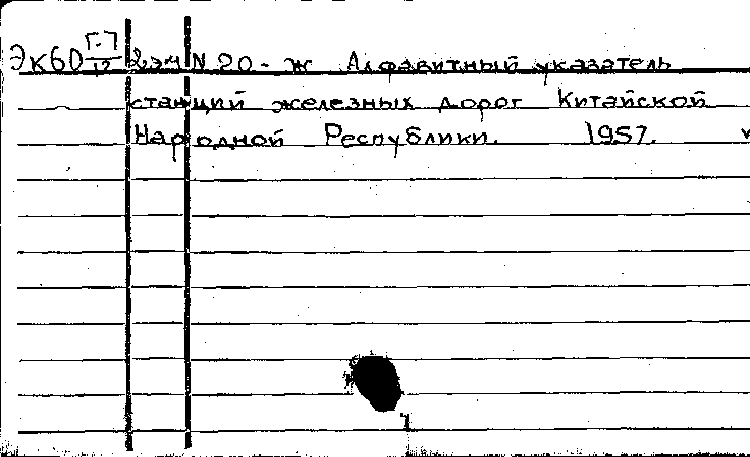 Эк60 Г-7/12 2эк N 20-ж Алфавитный указатель
станций железных дорог Китайской
Народной Республики. 1957.